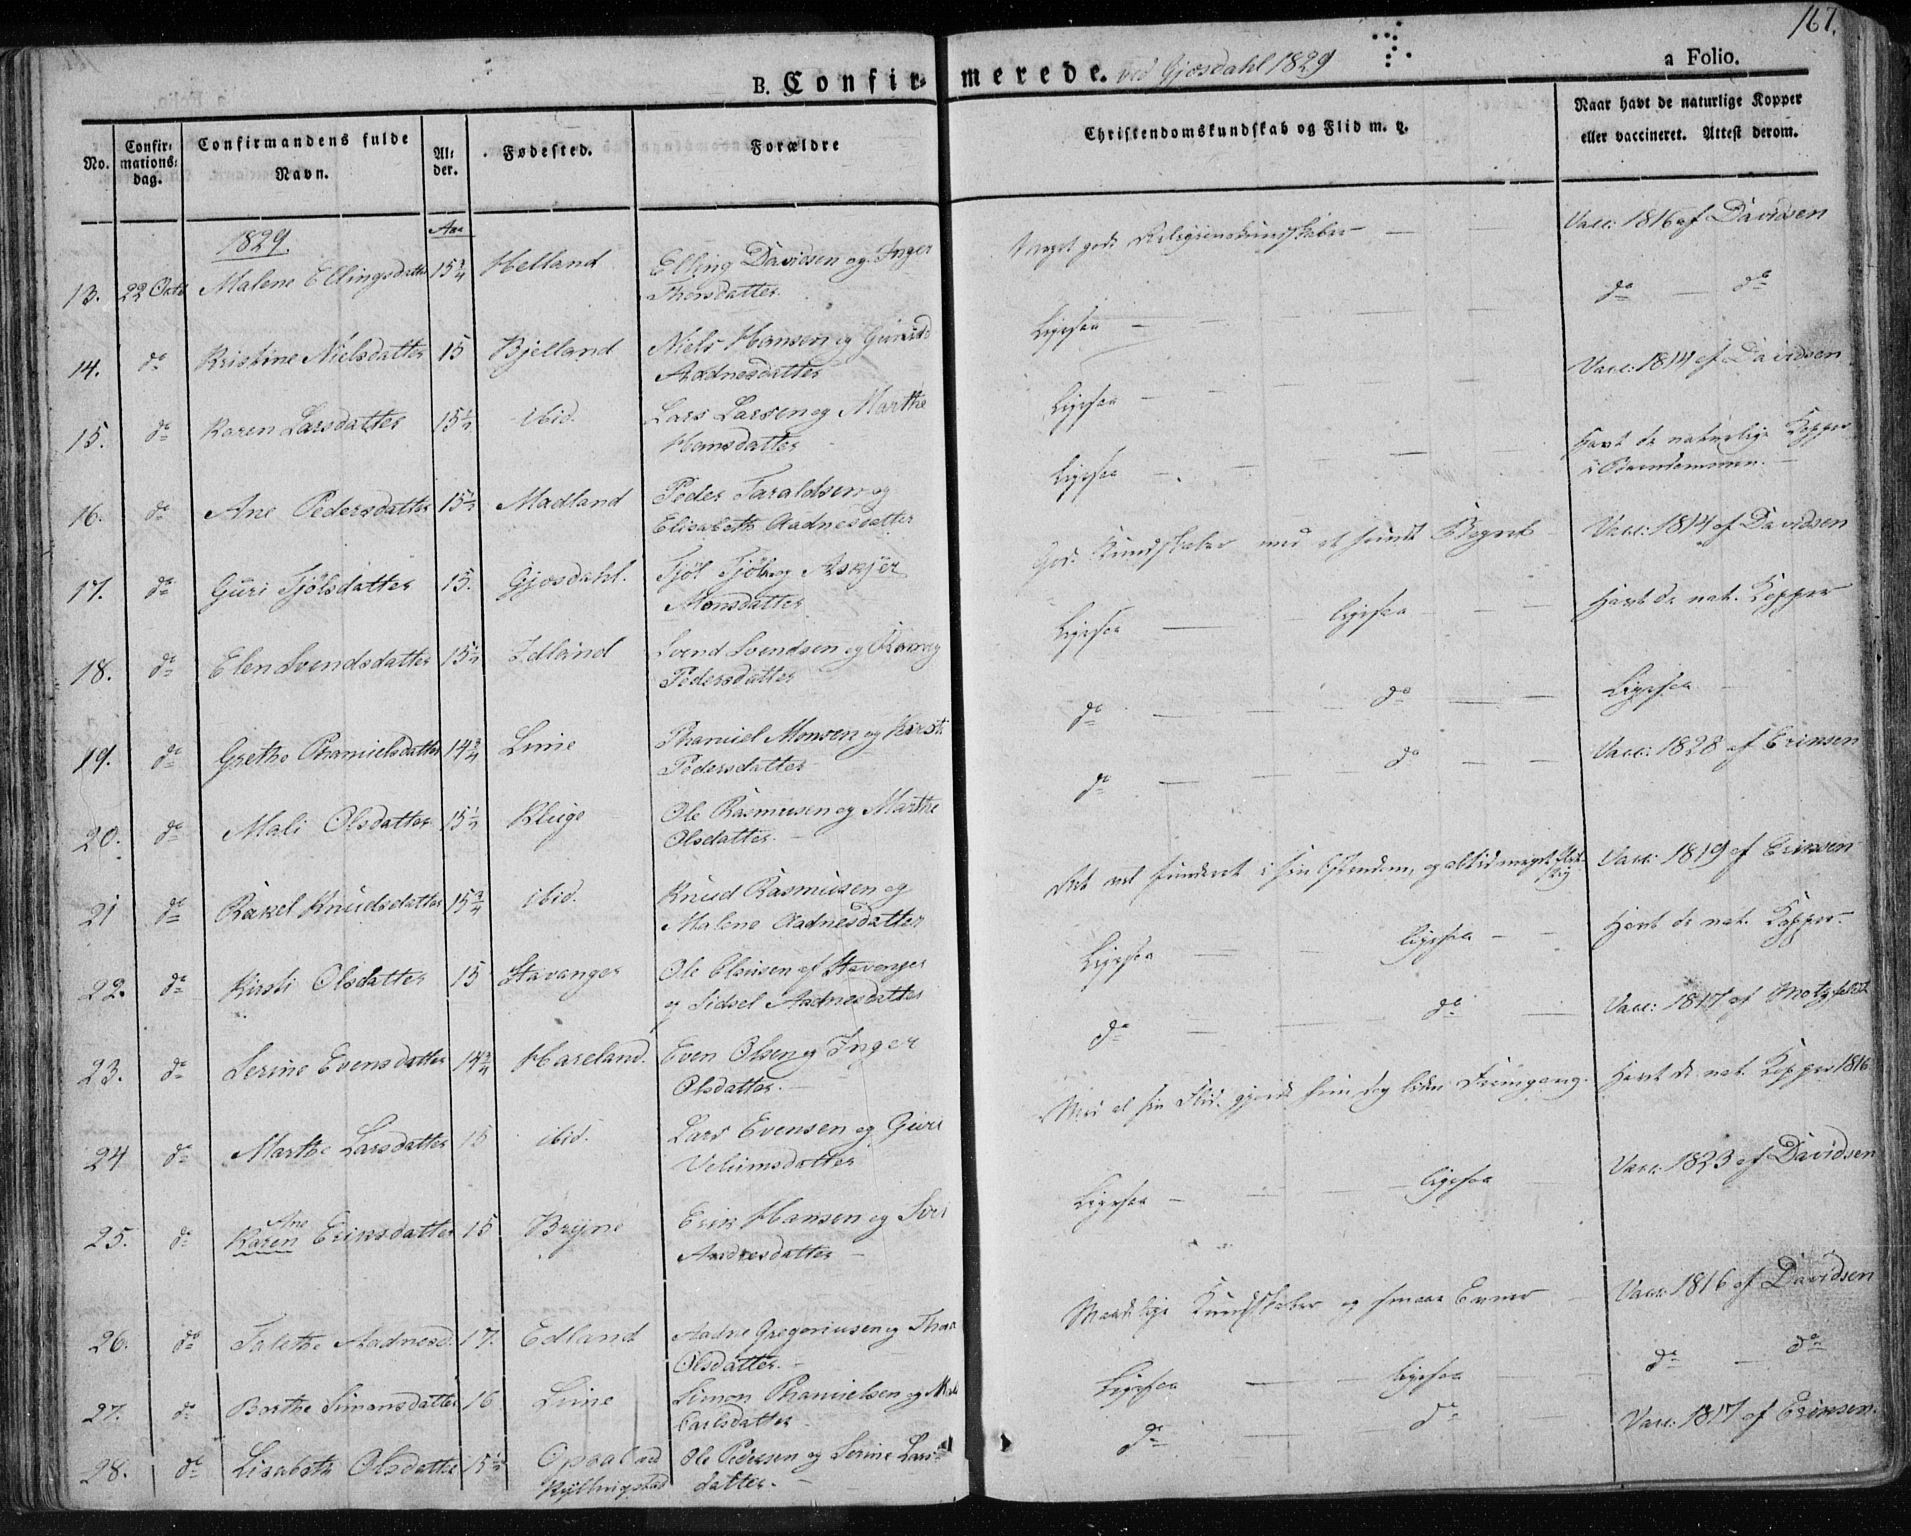 167.
B. Confirmerede. ved Gjosdahl 1829
a Folio.
No.
Confirmations-dag.
Confirmandens fulde Navn.
Alder.
Fødested.
Forældre
Christendomskundskab og Flid m. v.
Naar havt de naturlige Kopper eller vaccineret. Attest derom.
1829.
Aar
13. 22 Octb Malene Ellingsdatter 15 3/4 Helland Elling Davidsen og Inger
Thorsdatter.
Meget gode Religionskundskaber — Vacc: 1816 af Davidsen
14. do Kristine Nielsdatter 15 Bjelland Niels Hansen og Gunild
Aadnesdatter
Ligesaa — do — do
15. do Karen Larsdatter 15 1/2 ibid. Lars Larsen og Marthe
Hansdatter
Ligesaa — Vacc: 1814 af Davidsen
16. do Ane Pedersdatter 15 1/2 Madland Peder Taraldsen og
Elisabeth Aadnesdatter
Ligesaa — Havt de naturlige Kopper
i Barndommen. —
17. do Guri Tjölsdatter 15. Gjosdahl. Tjöl Tjöls og Askjer
Monsdatter
Gode Kundskaber med et sundt Begreb Vacc: 1814 af Davidsen
18. do Elen Svendsdatter 15 1/2 Edland Svend Svendsen og
Pedersdatter
Ligesaa — ligesaa — Havt de nat. Kopper
19. do Grethe Thamielsdatter 14 3/4 Lime Thamiel Monsen og Kirsti
Pedersdatter
do — do — Ligesaa —
20. do Mali Olsdatter 15 1/2 Kluge Ole Rasmusen og Marthe
Olsdatter. —
do — do — Vacc: 1828 af Eriksen
21 do Rakel Knudsdatter 15 3/4 ibid. Knud Rasmusen og
Malene Aadnesdatter
Ret vel funderet i sin Xstendom, og altid meget flittig Vacc: 1819 af Eriksen
22. do Kirsti Olsdatter 15 Stavanger Ole Olsen af Stavanger
og Sidsel Aadnesdatter
Ligesaa — ligesaa — Havt de nat. Kopper. —
23. do Serine Evensdatter 14 3/4 Hareland. Even Olsen og Inger
Olsdatter. —
do — do — Vacc: 1817 af Motzfeldt
24 do Marthe Larsdatter 15 ibid. Lars Evensen og Guri
Velumsdatter
Med al sin Flid gjorde hun dog liden Fremgang. Havt de nat. Kopper 1816
25. do Ane
Karen Eriksdatter 15 Bryne Erik Hansen og Siri
Aadnesdatter —
Ligesaa — ligesaa Vacc: 1823 af Davidsen
26. do Talethe Aadnesd. 17. Edland Aadne Gregoriusen og
Olsdatter. —
Maadelige Kundskaber og smaae Evner — Vacc: 1816 af Davidsen
27. do Berthe Simonsdatter 16 Lime Simon Thamielsen og
Carlsdatter.
Ligesaa — ligesaa — do — do
28. do Lisabeth Olsdatter 15 1/2 Opsal ved
Kyllingstad Ole Pedersen og Serine Lars-
datter. —
do — do — Vacc: 1817 af Eriksen.